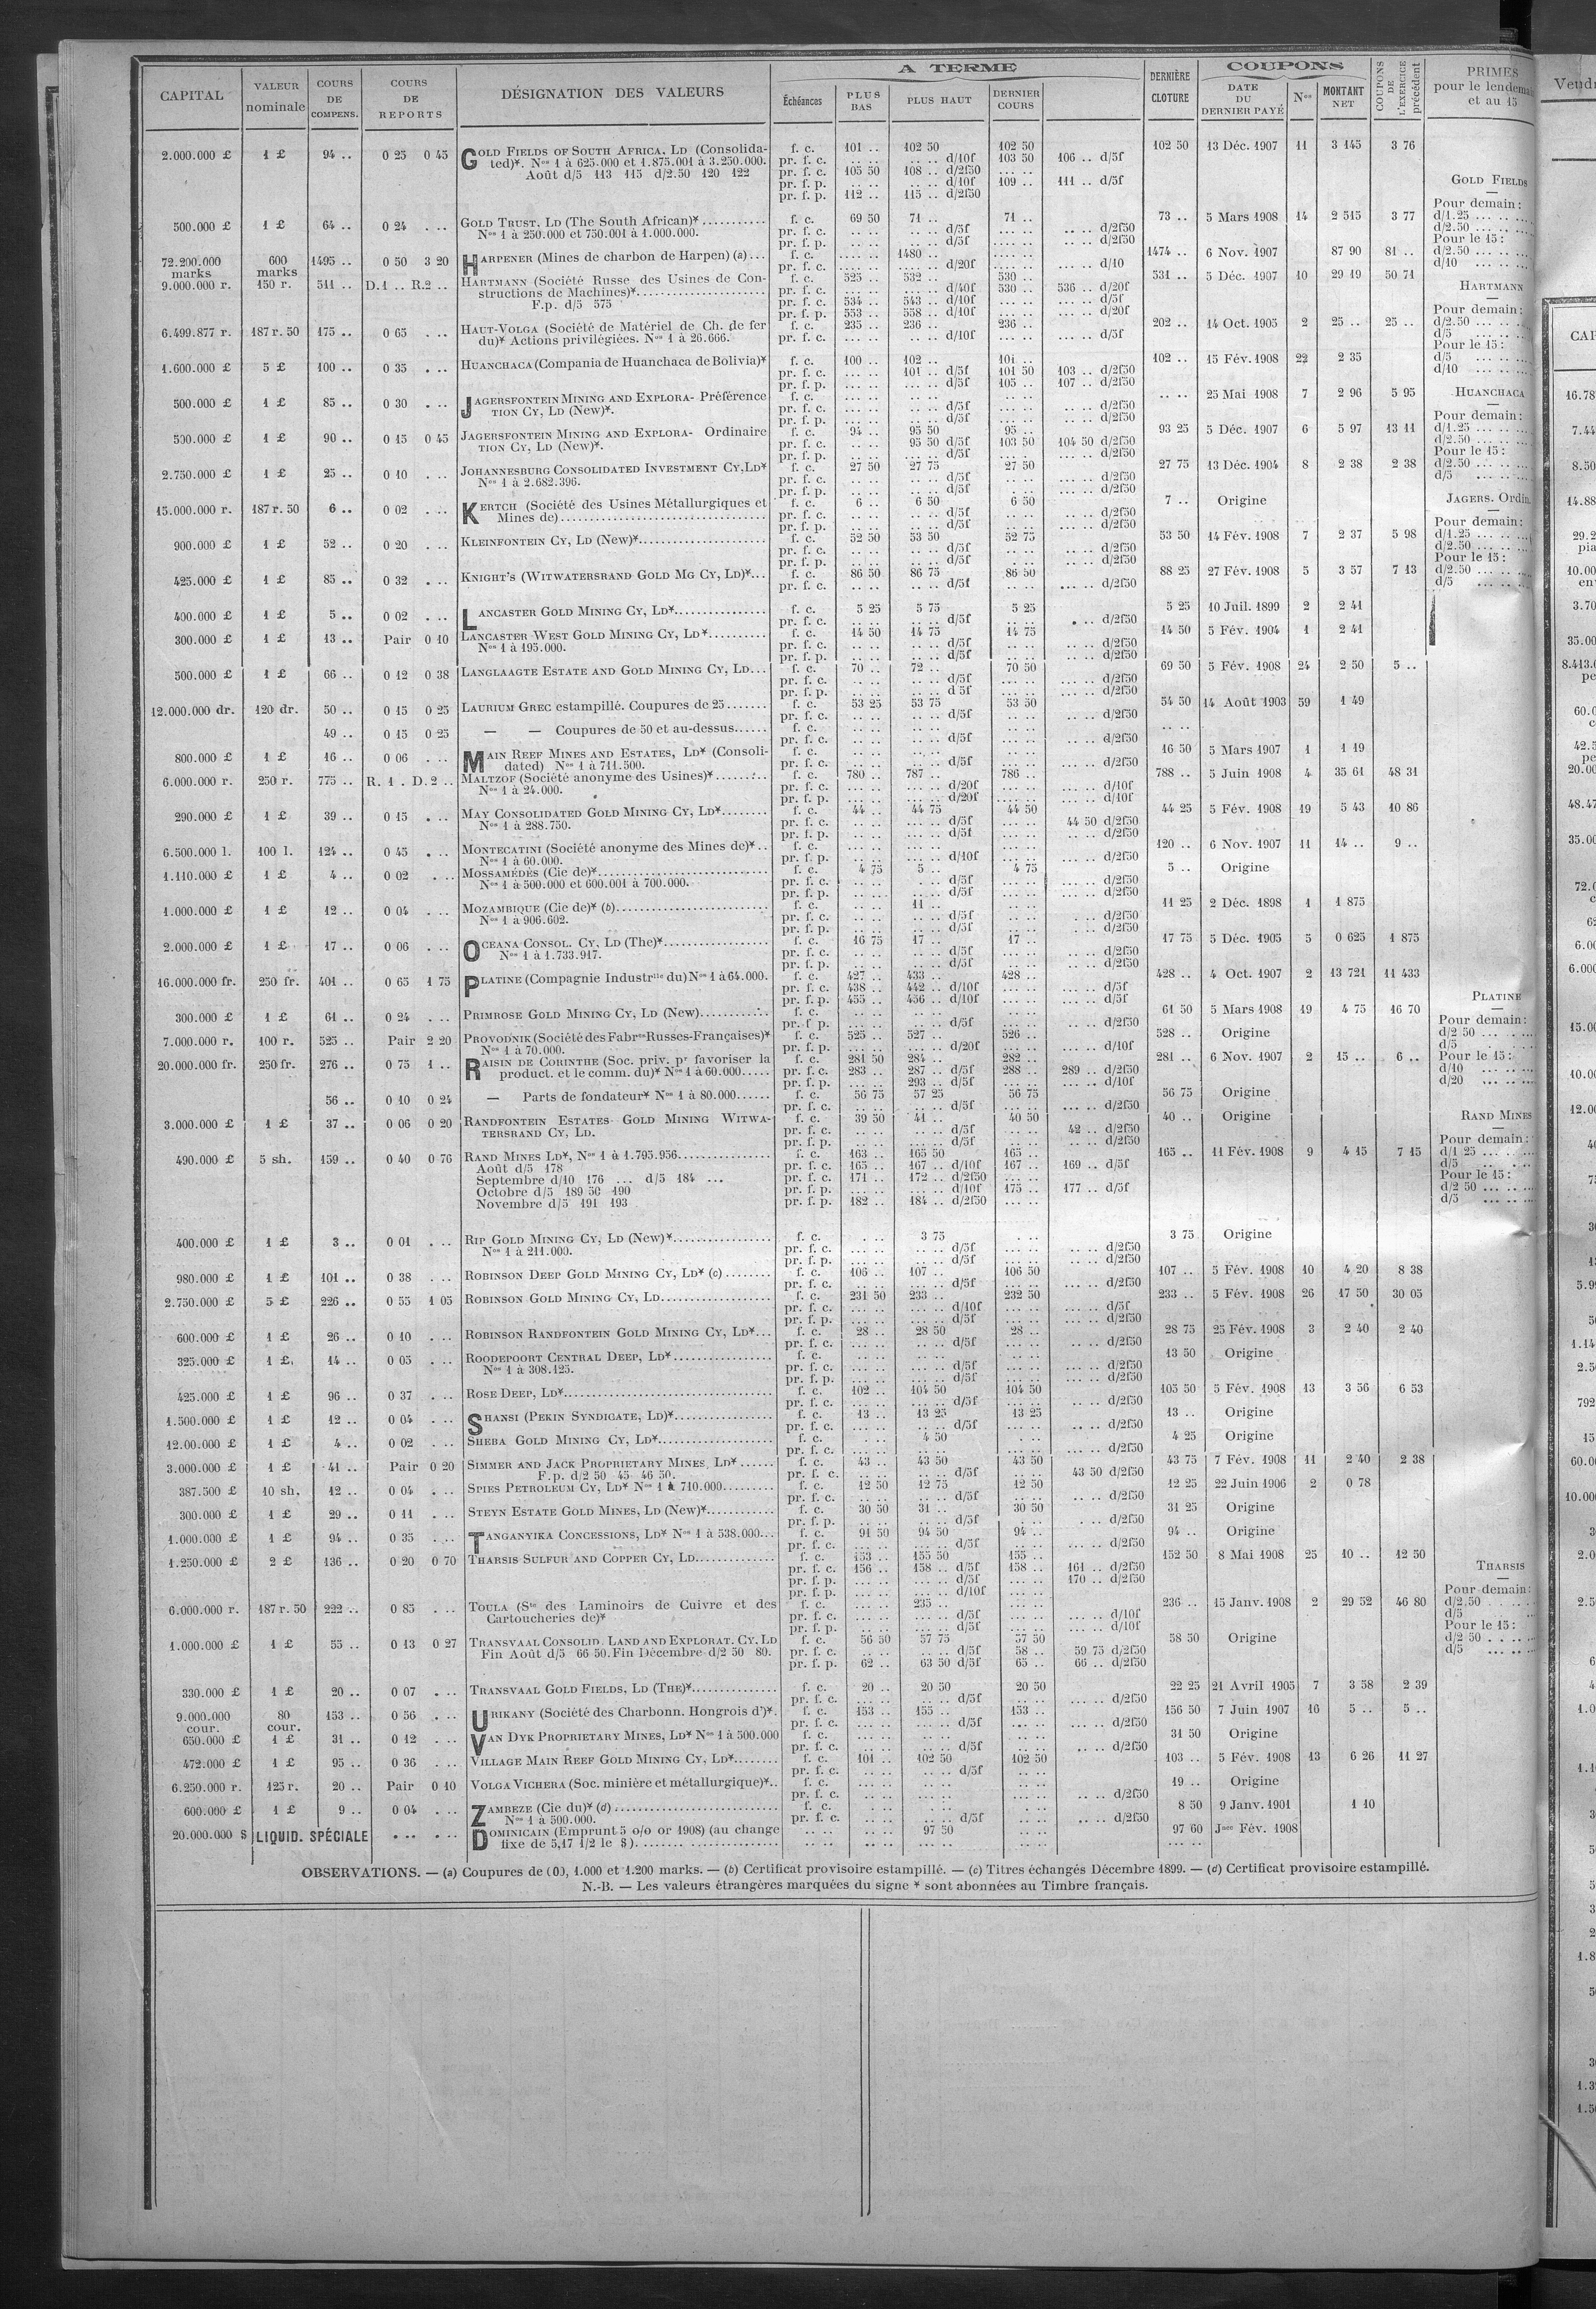 CAPITAL | VALEUR nominale | COURS DE COMPENS. | COURS DE REPORTS | DÉSIGNATION DES VALEURS | A TERME | Échéances | PLUS BAS | PLUS HAUT | DERNIER COURS | DERNIÈRE CLOTURE | COUPONS | DATE DU DERNIER PAYÉ | Nos | MONTANT NET | COUPONS DE L'EXERCICE précédent | PRIMES pour le lendemain et au 15
2.000.000 £ | 1 £ | 94 .. | 0 25 0 45 | GOLD FIELDS OF SOUTH AFRICA, LD (Consolida- | f. c. | 101 .. | 102 50 | 102 50 | 102 50 | 13 Déc. 1907 | 11 | 3 145 | 3 76
ted)*. Nos 1 à 625.000 et 1.875.001 à 3.250.000. | pr. f. c. | .. .. d/10f | 103 50 | 106 .. d/5f
Août d/5 113 115 d/2.50 120 122 | pr. f. c. | 105 50 | 108 .. d/2f50
pr. f. p. | .. .. | .. .. d/10f | 109 .. | 111 .. d/5f
pr. f. p. | 112 .. | 115 .. d/2f50
500.000 £ | 1 £ | 64 .. | 0 24 . .. | GOLD TRUST, LD (The South African)* | f. c. | 69 50 | 71 .. | 71 .. | 73 .. | 5 Mars 1908 | 14 | 2 515 | 3 77
Nos 1 à 250.000 et 750.001 à 1.000.000. | pr. f. c. | .. .. | .. .. d/5f | .. .. d/2f50
pr. f. p. | .. .. | .. .. d/5f | .. .. d/2f50
72.200.000 marks | 600 marks | 1495 .. | 0 50 3 20 | HARPENER (Mines de charbon de Harpen) (a) | f. c. | 1480 .. | 1474 .. | 6 Nov. 1907 | 87 90 | 81 ..
pr. f. c. | .. .. d/20f | ... .. d/10
9.000.000 r. | 150 r. | 511 .. | D.1 .. R.2 .. | HARTMANN (Société Russe des Usines de Con- | f. c. | 525 .. | 532 .. | 530 .. | 531 .. | 5 Déc. 1907 | 10 | 29 19 | 50 71
structions de Machines)* | pr. f. c. | .. .. d/40f | 530 .. | 536 .. d/20f
F.p. d/5 575 | pr. f. c. | 534 .. | 543 .. d/10f | ... .. d/5f
pr. f. p. | 553 .. | 558 .. d/10f | ... .. d/20f
6.499.877 r. | 187 r. 50 | 175 .. | 0 65 . .. | HAUT-VOLGA (Société de Matériel de Ch. de fer | f. c. | 235 .. | 236 .. | 236 .. | 202 .. | 14 Oct. 1905 | 2 | 25 .. | 25 ..
du)* Actions privilégiées. Nos 1 à 26.666. | pr. f. c. | .. .. d/10f | ... .. d/5f
1.600.000 £ | 5 £ | 100 .. | 0 35 . .. | HUANCHACA (Compania de Huanchaca de Bolivia)* | f. c. | 100 .. | 102 .. | 101 .. | 102 .. | 15 Fév. 1908 | 22 | 2 35
pr. f. c. | ... .. | 101 .. d/5f | 101 50 | 103 .. d/2f50
pr. f. p. | ... .. | ... .. d/5f | 105 .. | 107 .. d/2f50
500.000 £ | 1 £ | 85 .. | 0 30 . .. | JAGERSFONTEIN MINING AND EXPLORA- Préférence | f. c. | .. .. | 25 Mai 1908 | 7 | 2 96 | 5 95
TION CY, LD (New)*. | pr. f. c. | .. .. d/5f | .. .. d/2f50
pr. f. p. | .. .. d/5f | .. .. d/2f50
500.000 £ | 1 £ | 90 .. | 0 15 0 45 | JAGERSFONTEIN MINING AND EXPLORA- Ordinaire | f. c. | 94 .. | 95 50 | 95 .. | 93 25 | 5 Déc. 1907 | 6 | 5 97 | 13 11
TION CY, LD (New)*. | pr. f. c. | .. .. | 95 50 d/5f | 103 50 | 104 50 d/2f50
pr. f. p. | .. .. d/5f | .. .. d/2f50
2.750.000 £ | 1 £ | 25 .. | 0 10 . .. | JOHANNESBURG CONSOLIDATED INVESTMENT CY, LD* | f. c. | 27 50 | 27 75 | 27 50 | 27 75 | 13 Déc. 1904 | 8 | 2 38 | 2 38
Nos 1 à 2.682.396. | pr. f. c. | .. .. d/5f | .. .. d/2f50
pr. f. p. | .. .. d/5f | .. .. d/2f50
15.000.000 r. | 187 r. 50 | 6 .. | 0 02 . .. | KERTCH (Société des Usines Métallurgiques et | f. c. | 6 .. | 6 50 | 6 50 | 7 .. | Origine
Mines de) | pr. f. c. | .. .. d/5f | .. .. d/2f50
pr. f. p. | .. .. d/5f | .. .. d/2f50
900.000 £ | 1 £ | 52 .. | 0 20 . .. | KLEINFONTEIN CY, LD (New)* | f. c. | 52 50 | 53 50 | 52 75 | 53 50 | 14 Fév. 1908 | 7 | 2 37 | 5 98
pr. f. c. | .. .. d/5f | .. .. d/2f50
pr. f. p. | .. .. d/5f | .. .. d/2f50
425.000 £ | 1 £ | 85 .. | 0 32 . .. | KNIGHT'S (WITWATERSRAND GOLD MG CY, LD)* | f. c. | 86 50 | 86 75 | 86 50 | 88 25 | 27 Fév. 1908 | 5 | 3 57 | 7 13
pr. f. c. | .. .. d/5f | .. .. d/2f50
400.000 £ | 1 £ | 5 .. | 0 02 . .. | LANCASTER GOLD MINING CY, LD* | f. c. | 5 25 | 5 75 | 5 25 | 5 25 | 10 Juil. 1899 | 2 | 2 41
pr. f. c. | .. .. d/5f | .. d/2f50
300.000 £ | 1 £ | 13 .. | Pair 0 10 | LANCASTER WEST GOLD MINING CY, LD* | f. c. | 14 50 | 14 75 | 14 75 | 14 50 | 5 Fév. 1904 | 1 | 2 41
Nos 1 à 195.000. | pr. f. c. | .. .. d/5f | .. .. d/2f50
pr. f. p. | .. .. d/5f | .. .. d/2f50
500.000 £ | 1 £ | 66 .. | 0 12 0 38 | LANGLAAGTE ESTATE AND GOLD MINING CY, LD | f. c. | 70 .. | 72 .. | 70 50 | 69 50 | 5 Fév. 1908 | 24 | 2 50 | 5 ..
pr. f. c. | .. .. d/5f | .. .. d/2f50
pr. f. p. | .. .. d 5f | .. .. d/2f50
12.000.000 dr. | 120 dr. | 50 .. | 0 15 0 25 | LAURIUM GREC estampillé. Coupures de 25 | f. c. | 53 25 | 53 75 | 53 50 | 54 50 | 14 Août 1903 | 59 | 1 49
pr. f. c. | .. .. d/5f | .. .. d/2f50
49 .. | 0 15 0 25 | — — Coupures de 50 et au-dessus | f. c. | .. ..
pr. f. c. | .. .. d/5f | .. .. d/2f50
800.000 £ | 1 £ | 16 .. | 0 06 . .. | MAIN REEF MINES AND ESTATES, LD* (Consoli- | f. c. | 16 50 | 5 Mars 1907 | 1 | 1 19
dated) Nos 1 à 711.500. | pr. f. c. | .. .. d/5f | .. .. d/2f50
6.000.000 r. | 250 r. | 775 .. | R. 1 . D.2 .. | MALTZOF (Société anonyme des Usines)* | f. c. | 780 .. | 787 .. | 786 .. | 788 .. | 5 Juin 1908 | 4 | 35 61 | 48 31
Nos 1 à 24.000. | pr. f. c. | .. .. d/20f | ... .. d/10f
pr. f. p. | .. .. d/20f | ... .. d/10f
290.000 £ | 1 £ | 39 .. | 0 15 . .. | MAY CONSOLIDATED GOLD MINING CY, LD* | f. c. | 44 .. | 44 75 | 44 50 | 44 25 | 5 Fév. 1908 | 19 | 5 43 | 10 86
Nos 1 à 288.750. | pr. f. c. | .. .. d/5f | 44 50 d/2f50
pr. f. p. | .. .. d/5f | .. .. d/2f50
6.500.000 l. | 100 l. | 124 .. | 0 45 . .. | MONTECATINI (Société anonyme des Mines de)* | f. c. | 120 .. | 6 Nov. 1907 | 11 | 14 .. | 9 ..
Nos 1 à 60.000. | pr. f. p. | .. .. d/10f | ... .. d/2f50
1.110.000 £ | 1 £ | 4 .. | 0 02 . .. | MOSSAMÉDÈS (Cie de)* | f. c. | 4 75 | 5 .. | 4 75 | 5 .. | Origine
Nos 1 à 500.000 et 600.001 à 700.000. | pr. f. c. | .. .. d/5f | .. .. d/2f50
pr. f. p. | .. .. d/5f | .. .. d/2f50
1.000.000 £ | 1 £ | 12 .. | 0 04 . .. | MOZAMBIQUE (Cie de)* (b) | f. c. | 11 .. | 11 25 | 2 Déc. 1898 | 1 | 1 875
Nos 1 à 906.602. | pr. f. c. | .. .. d/5f | .. .. d/2f50
pr. f. p. | .. .. d/5f | .. .. d/2f50
2.000.000 £ | 1 £ | 17 .. | 0 06 . .. | OCEANA CONSOL. CY, LD (The)* | f. c. | 16 75 | 17 .. | 17 .. | 17 75 | 5 Déc. 1905 | 5 | 0 625 | 1 875
Nos 1 à 1.733.917. | pr. f. c. | .. .. d/5f | .. .. d/2f50
pr. f. p. | .. .. d/5f | .. .. d/2f50
16.000.000 fr. | 250 fr. | 401 .. | 0 65 1 75 | PLATINE (Compagnie Industrlle du) Nos 1 à 64.000. | f. c. | 427 .. | 433 .. | 428 .. | 428 .. | 4 Oct. 1907 | 2 | 13 721 | 11 433
pr. f. c. | 438 .. | 442 .. d/10f | ... .. d/5f
pr. f. p. | 455 .. | 456 .. d/10f | ... .. d/5f
300.000 £ | 1 £ | 61 .. | 0 24 . .. | PRIMROSE GOLD MINING CY, LD (New) | f. c. | 61 50 | 5 Mars 1908 | 19 | 4 75 | 16 70
pr. f p. | .. .. d/5f | .. .. d/2f50
7.000.000 r. | 100 r. | 525 .. | Pair 2 20 | PROVODNIK (Société des Fabres Russes-Françaises)* | f. c. | 525 .. | 527 .. | 526 .. | 528 .. | Origine
Nos 1 à 70.000. | pr. f. p. | .. .. d/20f | ... .. d/10f
20.000.000 fr. | 250 fr. | 276 .. | 0 75 1 .. | RAISIN DE CORINTHE (Soc. priv. pr favoriser la | f. c. | 281 50 | 284 .. | 282 .. | 281 .. | 6 Nov. 1907 | 2 | 15 .. | 6 ..
product. et le comm. du)* Nos 1 à 60.000 | pr. f. c. | 283 .. | 287 .. d/5f | 288 .. | 289 .. d/2f50
pr. f. p. | ... .. | 293 .. d/5f | ... .. d/10f
56 .. | 0 10 0 24 | — Parts de fondateur* Nos 1 à 80.000 | f. c. | 56 75 | 57 25 | 56 75 | 56 75 | Origine
pr. f. c. | .. .. d/5f | ... .. d/2f50
3.000.000 £ | 1 £ | 37 .. | 0 06 0 20 | RANDFONTEIN ESTATES GOLD MINING WITWA- | f. c. | 39 50 | 41 .. | 40 50 | 40 .. | Origine
TERSRAND CY, LD. | pr. f. c. | .. .. d/5f | 42 .. d/2f50
pr. f. p. | .. .. d/5f | .. .. d/2f50
490.000 £ | 5 sh. | 159 .. | 0 40 0 76 | RAND MINES LD*, Nos 1 à 1.795.956 | f. c. | 163 .. | 165 50 | 165 .. | 165 .. | 11 Fév. 1908 | 9 | 4 15 | 7 15
Août d/5 178 | pr. f. c. | 165 .. | 167 .. d/10f | 167 .. | 169 .. d/5f
Septembre d/10 176 ... d/5 184 ... | pr. f. c. | 171 .. | 172 .. d/2f50
Octobre d/5 189 50 190 | pr. f. p. | ... .. | ... .. d/10f | 175 .. | 177 .. d/5f
Novembre d/5 191 193 | pr. f. p. | 182 .. | 184 .. d/2f50
400.000 £ | 1 £ | 3 .. | 0 01 . .. | RIP GOLD MINING CY, LD (New)* | f. c. | 3 75 | 3 75 | Origine
Nos 1 à 211.000. | pr. f. c. | .. .. d/5f | .. .. d/2f50
pr. f. p. | .. .. d/5f | .. .. d/2f50
980.000 £ | 1 £ | 101 .. | 0 38 . .. | ROBINSON DEEP GOLD MINING CY, LD* (c) | f. c. | 106 .. | 107 .. | 106 50 | 107 .. | 5 Fév. 1908 | 10 | 4 20 | 8 38
pr. f. c. | .. .. d/5f | ... .. d/2f50
2.750.000 £ | 5 £ | 226 .. | 0 55 1 05 | ROBINSON GOLD MINING CY, LD | f. c. | 231 50 | 233 .. | 232 50 | 233 .. | 5 Fév. 1908 | 26 | 17 50 | 30 05
pr. f. c. | .. .. d/10f | ... .. d/5f
pr. f. p. | .. .. d/5f | ... .. d/2f50
600.000 £ | 1 £ | 26 .. | 0 10 . .. | ROBINSON RANDFONTEIN GOLD MINING CY, LD* | f. c. | 28 .. | 28 50 | 28 .. | 28 75 | 25 Fév. 1908 | 3 | 2 40 | 2 40
pr. f. c. | .. .. d/5f | .. .. d/2f50
325.000 £ | 1 £ | 14 .. | 0 05 . .. | ROODEPOORT CENTRAL DEEP, LD* | f. c. | 13 50 | Origine
Nos 1 à 308.125. | pr. f. c. | .. .. d/5f | .. .. d/2f50
pr. f. p. | .. .. d/5f | .. .. d/2f50
425.000 £ | 1 £ | 96 .. | 0 37 . .. | ROSE DEEP, LD* | f. c. | 102 .. | 104 50 | 104 50 | 105 50 | 5 Fév. 1908 | 13 | 3 56 | 6 53
pr. f. c. | .. .. d/5f | .. .. d/2f50
1.500.000 £ | 1 £ | 12 .. | 0 04 . .. | SHANSI (PEKIN SYNDICATE, LD)* | f. c. | 13 .. | 13 25 | 13 25 | 13 .. | Origine
pr. f. c. | .. .. d/5f | .. .. d/2f50
12.00.000 £ | 1 £ | 4 .. | 0 02 . .. | SHEBA GOLD MINING CY, LD* | f. c. | 4 50 | 4 25 | Origine
pr. f. c. | ... .. d/2f50
3.000.000 £ | 1 £ | 41 .. | Pair 0 20 | SIMMER AND JACK PROPRIETARY MINES, LD* | f. c. | 43 .. | 43 50 | 43 50 | 43 75 | 7 Fév. 1908 | 11 | 2 40 | 2 38
F.p. d/2 50 45 46 50. | pr. f. c. | .. .. d/5f | 43 50 d/2f50
387.500 £ | 10 sh. | 12 .. | 0 04 . .. | SPIES PETROLEUM CY, LD* Nos 1 à 710.000 | f. c. | 12 50 | 12 75 | 12 50 | 12 25 | 22 Juin 1906 | 2 | 0 78
pr. f. c. | .. .. d/5f | .. .. d/2f50
300.000 £ | 1 £ | 29 .. | 0 11 . .. | STEYN ESTATE GOLD MINES, LD (New)* | f. c. | 30 50 | 31 .. | 30 50 | 31 25 | Origine
pr. f. p. | .. .. d/5f | . .. d/2f50
1.000.000 £ | 1 £ | 94 .. | 0 35 . .. | TANGANYIKA CONCESSIONS, LD* Nos 1 à 538.000 | f. c. | 91 50 | 94 50 | 94 .. | 94 .. | Origine
pr. f. c. | .. .. d/5f | ... .. d/2f50
1.250.000 £ | 2 £ | 136 .. | 0 20 0 70 | THARSIS SULFUR AND COPPER CY, LD | f. c. | 153 .. | 155 50 | 155 .. | 152 50 | 8 Mai 1908 | 25 | 10 .. | 12 50
pr. f. c. | 156 .. | 158 .. d/5f | 158 .. | 161 .. d/2f50
pr. f. p. | ... .. | ... .. d/5f | ... .. | 170 .. d/2f50
pr. f. p. | ... .. | ... .. d/10f
6.000.000 r. | 187 r. 50 | 222 .. | 0 85 . .. | TOULA (Sté des Laminoirs de Cuivre et des | f. c. | 235 .. | 236 .. | 15 Janv. 1908 | 2 | 29 52 | 46 80
Cartoucheries de)* | pr. f. c. | .. .. d/5f | ... .. d/10f
pr. f. p. | .. .. d/5f | ... .. d/10f
1.000.000 £ | 1 £ | 55 .. | 0 13 0 27 | TRANSVAAL CONSOLID. LAND AND EXPLORAT. CY. LD | f. c. | 56 50 | 57 75 | 57 50 | 58 50 | Origine
Fin Août d/5 66 50. Fin Décembre d/2 50 80. | pr. f. c. | .. .. | .. .. d/5f | 58 .. | 59 75 d/2f50
pr. f. p. | 62 .. | 63 50 d/5f | 65 .. | 66 .. d/2f50
330.000 £ | 1 £ | 20 .. | 0 07 . .. | TRANSVAAL GOLD FIELDS, LD (THE)* | f. c. | 20 .. | 20 50 | 20 50 | 22 25 | 21 Avril 1905 | 7 | 3 58 | 2 39
pr. f. c. | .. .. d/5f | ... .. d/2f50
9.000.000 cour. | 80 cour. | 153 .. | 0 56 . .. | URIKANY (Société des Charbonn. Hongrois d')*. | f. c. | 153 .. | 155 .. | 153 .. | 156 50 | 7 Juin 1907 | 16 | 5 .. | 5 ..
pr. f. c. | .. .. d/5f | ... .. d/2f50
650.000 £ | 1 £ | 31 .. | 0 12 . .. | VAN DYK PROPRIETARY MINES, LD* Nos 1 à 500.000 | f. c. | 31 50 | Origine
pr. f. c. | .. .. d/5f | .. .. d/2f50
472.000 £ | 1 £ | 95 .. | 0 36 . .. | VILLAGE MAIN REEF GOLD MINING CY, LD* | f. c. | 101 .. | 102 50 | 102 50 | 103 .. | 5 Fév. 1908 | 13 | 6 26 | 11 27
pr. f. c. | .. .. d/5f
6.250.000 r. | 125 r. | 20 .. | Pair 0 10 | VOLGA VICHERA (Soc. minière et métallurgique)* | f. c. | 19 .. | Origine
pr. f. c. | .. .. d/2f50
600.000 £ | 1 £ | 9 .. | 0 04 . .. | ZAMBÈZE (Cie du)* (d) | f. c. | 8 50 | 9 Janv. 1901 | 1 10
Nos 1 à 500.000. | pr. f. c. | .. .. d/5f | .. .. d/2f50
20.000.000 $ | LIQUID. SPÉCIALE | DOMINICAIN (Emprunt 5 o/o or 1908) (au change | 97 50 | 97 60 | Jnce Fév. 1908
fixe de 5,17 1/2 le $)
GOLD FIELDS
Pour demain:
d/1.25
d/2.50
Pour le 15:
d/2.50
d/10
HARTMANN
Pour demain:
d/2.50
d/5
Pour le 15:
d/5
d/10
HUANCHACA
Pour demain:
d/1.25
d/2.50
Pour le 15:
d/2.50
d/5
JAGERS. Ordin.
Pour demain:
d/1.25
d/2.50
Pour le 15:
d/2.50
d/5
PLATINE
Pour demain:
d/2 50
d/5
Pour le 15:
d/10
d/20
RAND MINES
Pour demain:
d/1 25
d/5
Pour le 15:
d/2 50
d/5
THARSIS
Pour demain:
d/2.50
d/5
Pour le 15:
d/2 50
d/5
OBSERVATIONS. — (a) Coupures de (00, 1.000 et 1.200 marks. — (b) Certificat provisoire estampillé. — (c) Titres échangés Décembre 1899. — (d) Certificat provisoire estampillé.
N.-B. — Les valeurs étrangères marquées du signe * sont abonnées au Timbre français.